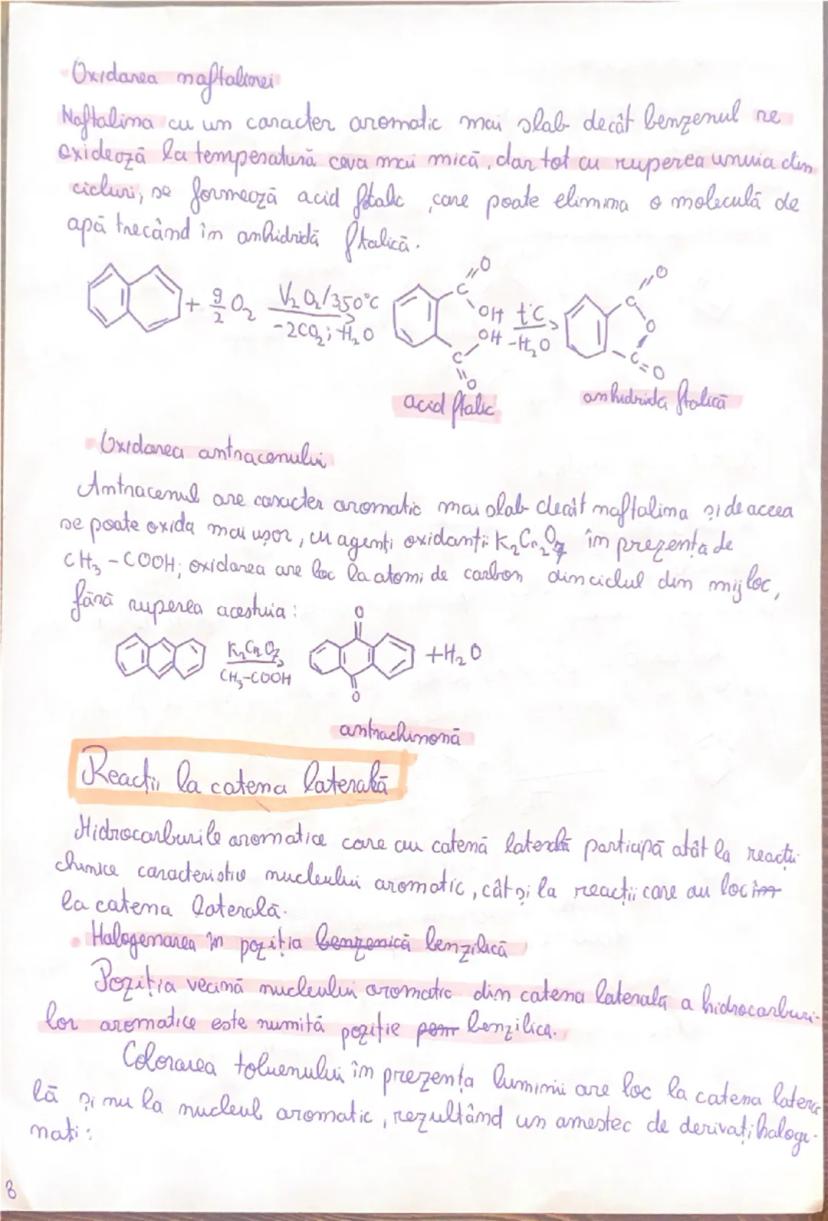 Oxidarea naftalinei
Naftalina cu un caracter aromatic mai slab decât benzenul se
oxidează la temperatură ceva mai mică, dar tot cu ruperea unuia din
cicluri, se formează acid ftalic, care poate elimina o moleculă de
apă trecând în anhidridă ftalică.
+ 9/2 O2 V2O2/350°C -2CO2; -H2O C O OH OH C O t°C -H2O C O O C O
acid ftalic anhidrida ftalică
Oxidarea antracenului
Antracenul are caracter aromatic mai slab decât naftalina și de aceea
se poate oxida mai ușor, cu agenți oxidanți: K2Cr2O7 în prezența de
CH3-COOH; oxidarea are loc la atomi de carbon din ciclul din mijloc,
fără ruperea acestuia:
K2Cr2O7 CH3-COOH O O +H2O
antrachinonă
Reacții la catena laterală
Hidrocarburile aromatice care au catenă laterală participă atât la reacții
chimice caracteristice nucleului aromatic, cât și la reacții care au loc im
la catena laterală.
Halogenarea în poziția benzenică benzilică
Poziția vecină nucleului aromatic din catena laterală a hidrocarburi-
lor aromatice este numită poziție pom benzilica.
Colorarea toluenului în prezența luminii are loc la catena latera
lă și nu la nucleul aromatic, rezultând un amestec de derivați haloge-
nati:
8